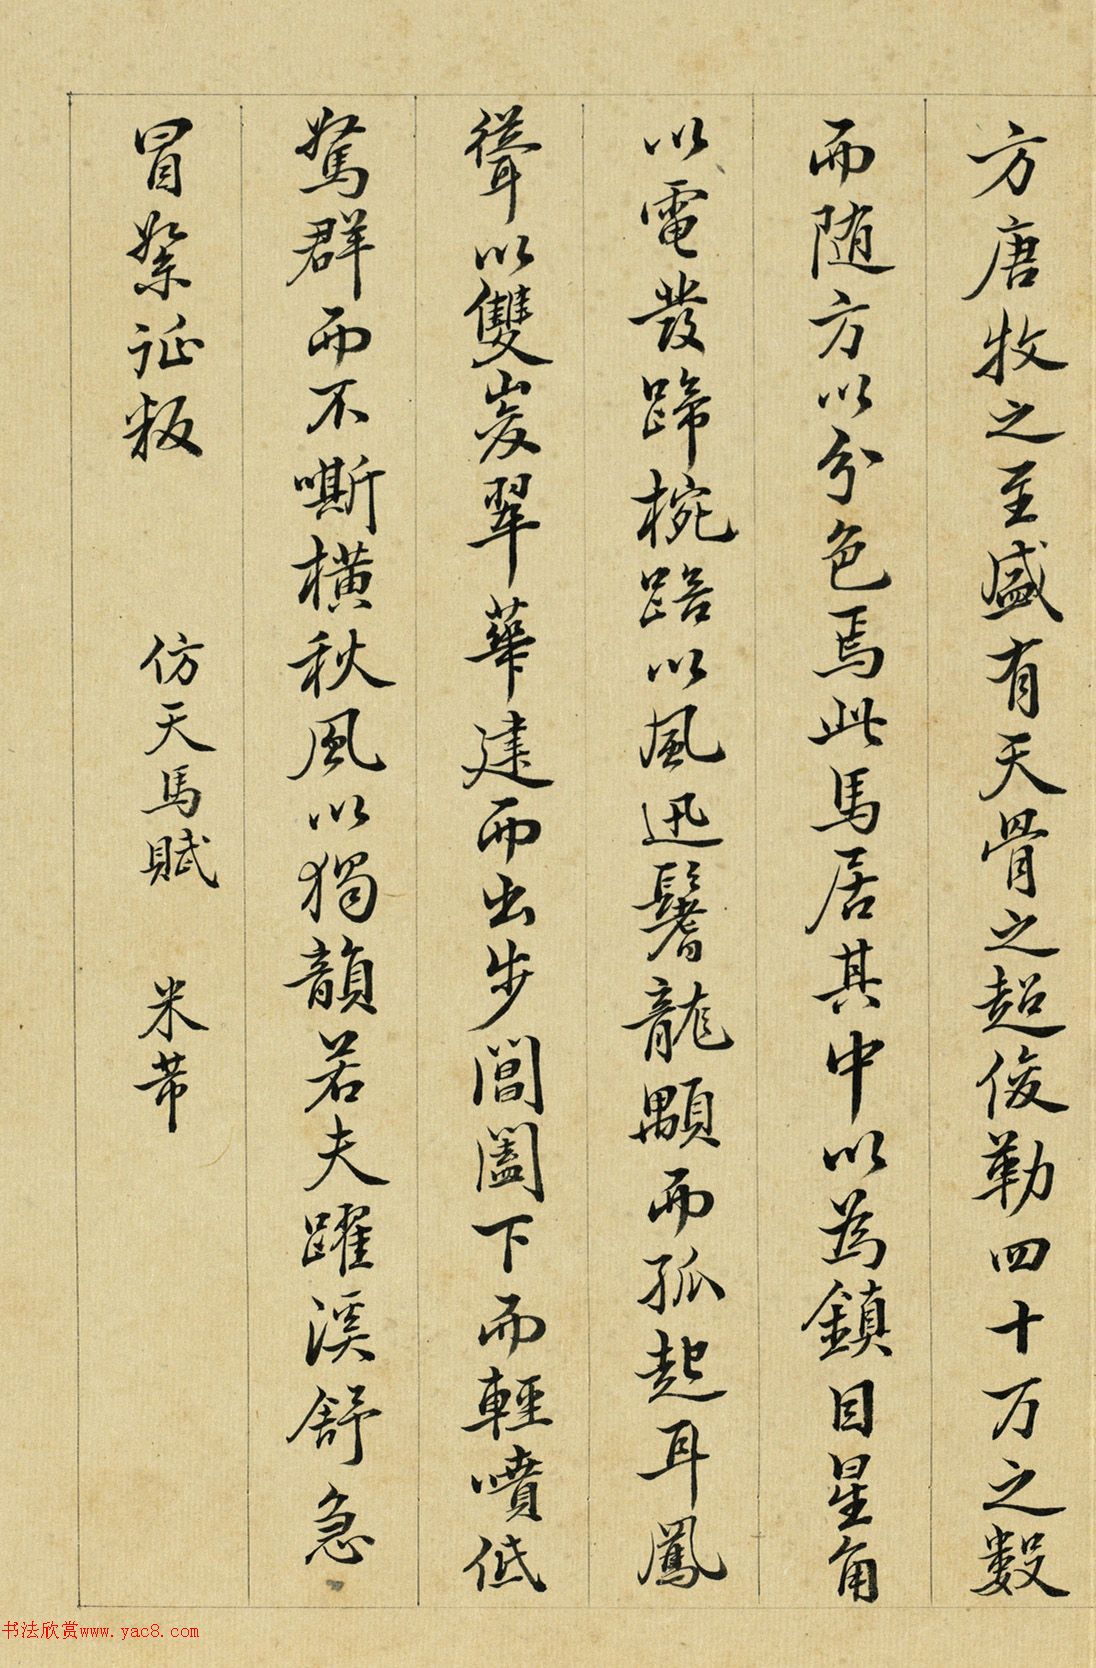 方唐牧之至盛有天骨之超俊勒四十万之数
而随方以分色焉此馬居其中以為鎮目星角
以電發蹄椀踣以風迅鬐龍顒而孤起耳鳳
聳以雙岌翠華建而出步閶闔下而輕噴低
駑群而不嘶横秋風以獨韻若夫躍溪舒急
冒絮征叛
仿天馬賦 米芾
书法欣赏www.yac8.com